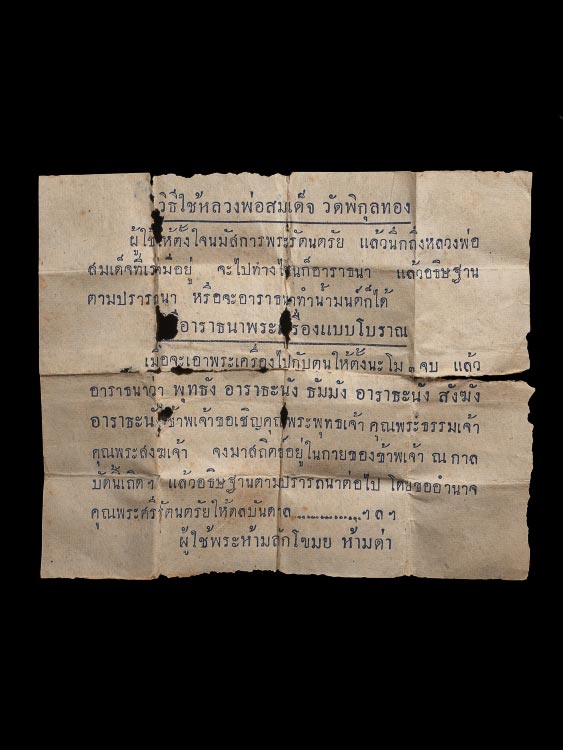 วิธีใช้หลวงพ่อสมเด็จ วัดพิกุลทอง
ผู้ใช้ให้ตั้งใจนมัสการพระรัตนตรัย แล้วนึกถึงหลวงพ่อ
สมเด็จที่เรามีอยู่ จะไปทางไหนก็อาราธนา แล้วอธิษฐาน
ตามปรารถนา หรือจะอาราธนาทำน้ำมนต์ก็ได้
อาราธนาพระเครื่องแบบโบราณ
เมื่อจะเอาพระเครื่องไปกับตนให้ตั้งนะโม ๓ จบ แล้ว
อาราธนาว่า พุทธัง อาราธะนัง ธัมมัง อาราธะนัง สังฆัง
อาราธะนัง ข้าพเจ้าขอเชิญคุณพระพุทธเจ้า คุณพระธรรมเจ้า
คุณพระสงฆเจ้า จงมาสถิตย์อยู่ในกายของข้าพเจ้า ณ กาล
บัดนี้เถิดฯ แล้วอธิษฐานตามปรารถนาต่อไป โดยขออำนาจ
คุณพระศรีรัตนตรัยให้ดลบันดาล ................ฯลฯ
ผู้ใช้พระห้ามลักโขมย ห้ามด่า